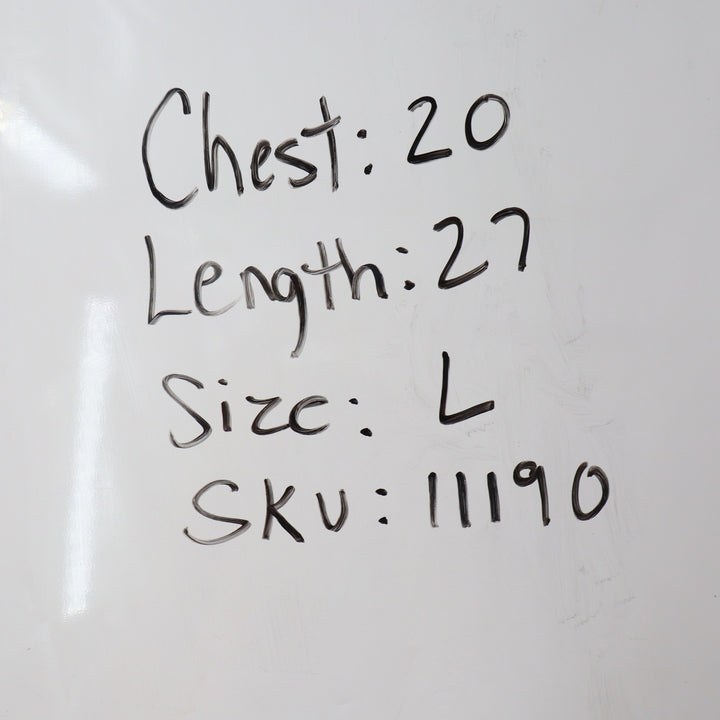 Chest: 20
Length: 27
Size: L
SKU: 11190